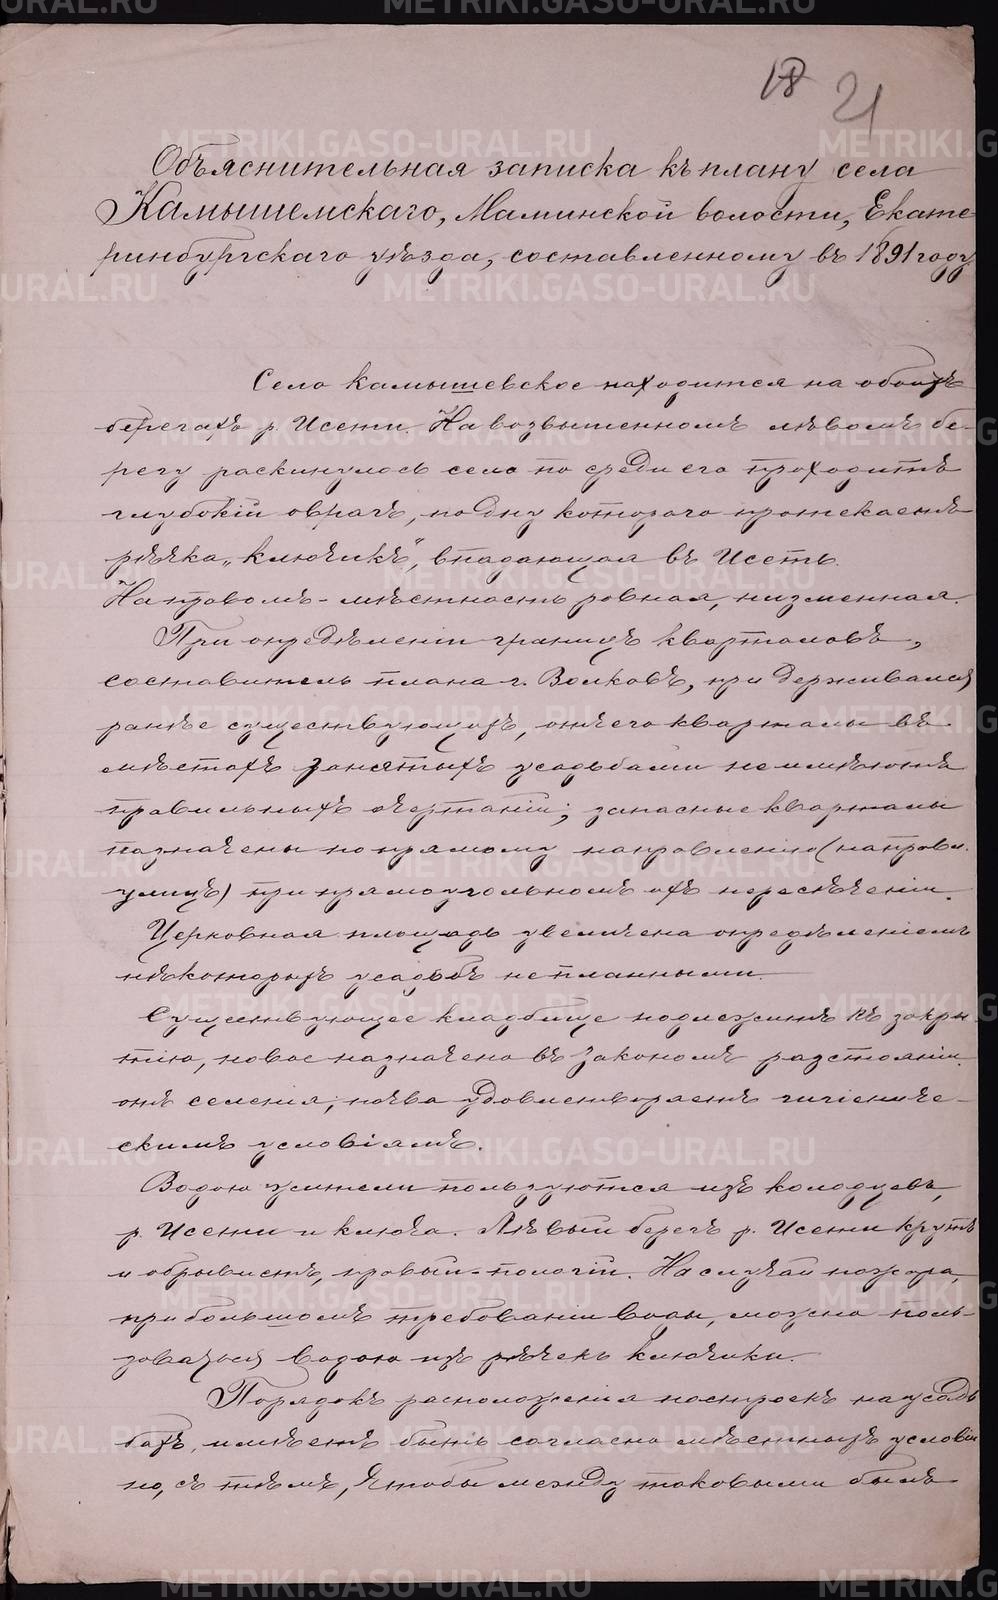 18 21
Объяснительная записка къ плану села
Камышемскаго, Маминской волости, Екате-
ринбургскаго уѣзда, составленному въ 1891 году
Село Камышевское находится на обоихъ
берегахъ р. Исети. На возвышенномъ лѣвомъ бе-
регу раскинулось село по среди его проходитъ
глубокій оврагъ, по дну котораго протекаетъ
рѣчка „Ключикъ", впадающая въ Исеть.
На правомъ - мѣстность ровная, низменная.
При опредѣленіи границъ кварталовъ,
составитель плана г. Волковъ, придерживался
ранѣе существующихъ, отчего кварталы въ
мѣстахъ занятыхъ усадьбами не имѣютъ
правильныхъ очертаній; запасные кварталы
назначены по прямому направленію (направл.
улицъ) при прямоугольномъ ихъ пересѣченіи.
Церковная площадь увеличена опредѣленіемъ
нѣкоторыхъ усадьбъ непланными.
Существующее кладбище подлежитъ къ закры-
тію, новое назначено въ законномъ разстояніи
отъ селенія, почва удовлетворяетъ гигіениче-
скимъ условіямъ.
Водою жители пользуются изъ колодцевъ,
р. Исети и ключа. Лѣвый берегъ р. Исети крутъ
и обрывистъ, правый - пологій. На случай пожара,
при большомъ требованіи воды, можно поль-
зоваться водою изъ рѣчекъ Ключики.
Порядокъ расположенія построекъ на усадь-
бахъ, имѣетъ быть согласно мѣстныхъ условій
но, съ тѣмъ, чтобы между таковыми былъ
METRIKI.GASO-URAL.RU